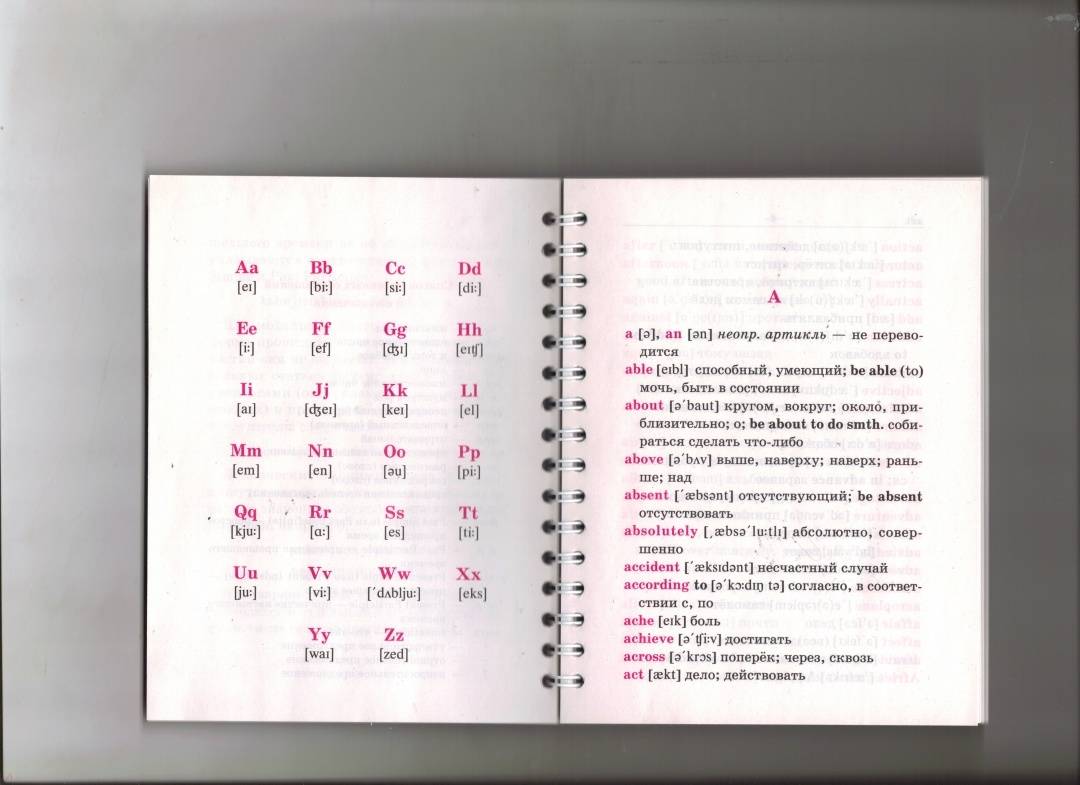 Aa Bb Cc Dd
[eı] [bi:] [si:] [di:]
Ee Ff Gg Hh
[i:] [ef] [ʤı] [eıʧ]
Ii Jj Kk Ll
[aı] [ʤeı] [keı] [el]
Mm Nn Oo Pp
[em] [en] [əụ] [pi:]
Qq Rr Ss Tt
[kju:] [ɑ:] [es] [ti:]
Uu Vv Ww Xx
[ju:] [vi:] [ˊdʌblju:] [eks]
Yy Zz
[waı] [zed]
A
a [ə], an [ən] неопр. артикль — не перево-
дится
able [eıbl] способный, умеющий; be able (to)
мочь, быть в состоянии
about [əˊbaut] кругом, вокруг; около, при-
близительно; о; be about to do smth. соби-
раться сделать что-либо
above [əˊbʌv] выше, наверху; наверх; рань-
ше; над
absent [ˊæbsənt] отсутствующий; be absent
отсутствовать
absolutely [ˏæbsəˊlu:tlı] абсолютно, совер-
шенно
accident [ˊæksıdənt] несчастный случай
according to [əˊkɔ:dıŋ tə] согласно, в соответ-
ствии с, по
ache [eık] боль
achieve [əˊʧi:v] достигать
across [əˊkrɔs] поперёк; через, сквозь
act [ækt] дело; действовать